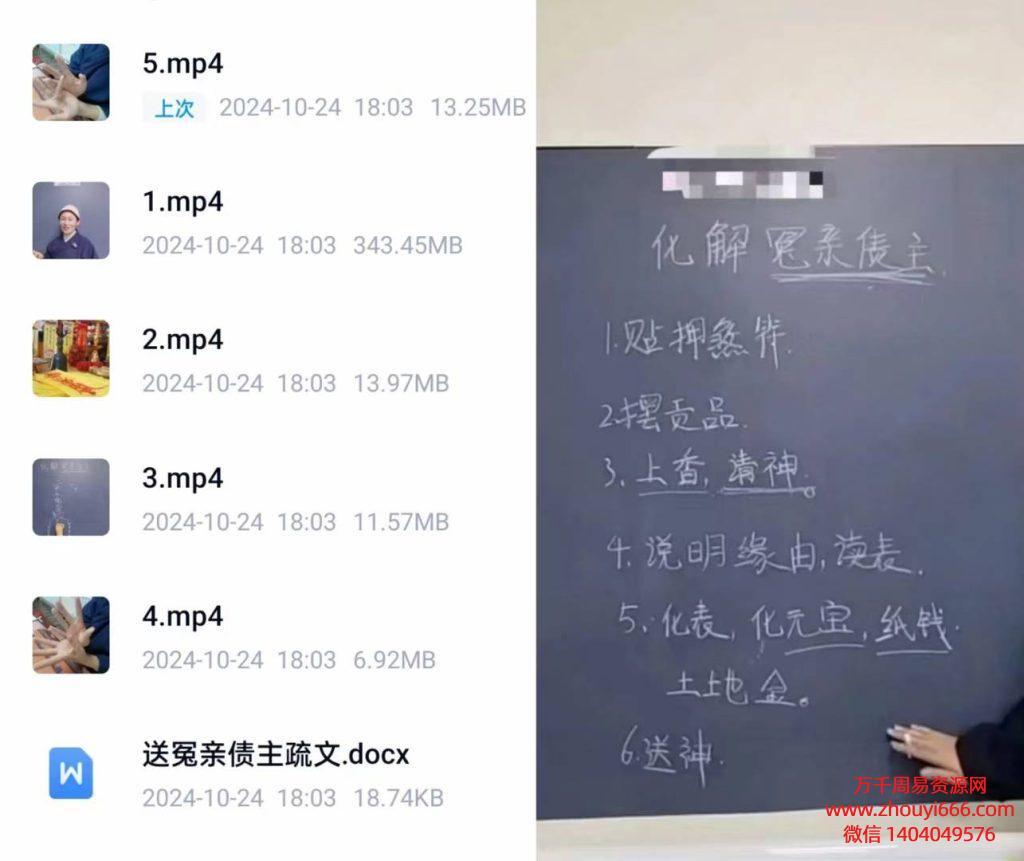 5.mp4
上次 2024-10-24 18:03 13.25MB
1.mp4
2024-10-24 18:03 343.45MB
2.mp4
2024-10-24 18:03 13.97MB
3.mp4
2024-10-24 18:03 11.57MB
4.mp4
2024-10-24 18:03 6.92MB
送冤亲债主疏文.docx
2024-10-24 18:03 18.74KB
化解冤亲债主.
1.贴押煞符.
2.摆贡品.
3、上香,请神。
4.说明缘由,读表.
5、化表,化元宝,纸钱.
土地金。
6.送神.
万千周易资源网
www.zhouyi666.com
微信 1404049576